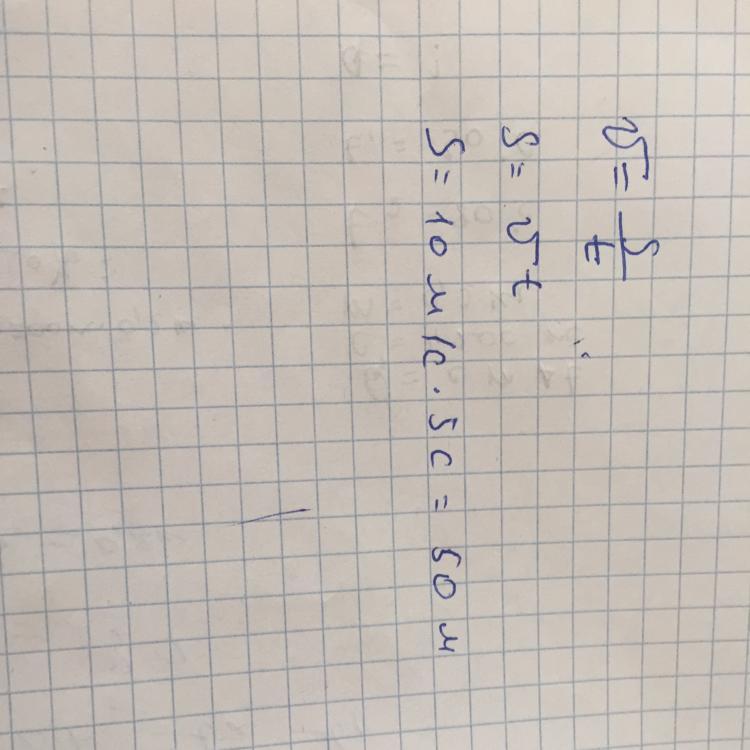 υ = S/t
S = υt
S = 10 м/с · 5 с = 50 м